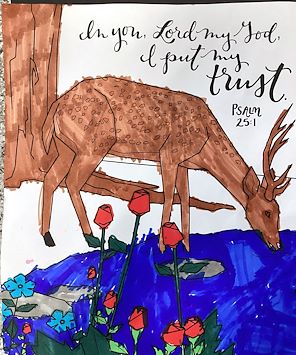 In you, Lord my God,
I put my
trust.
PSALM
25:1